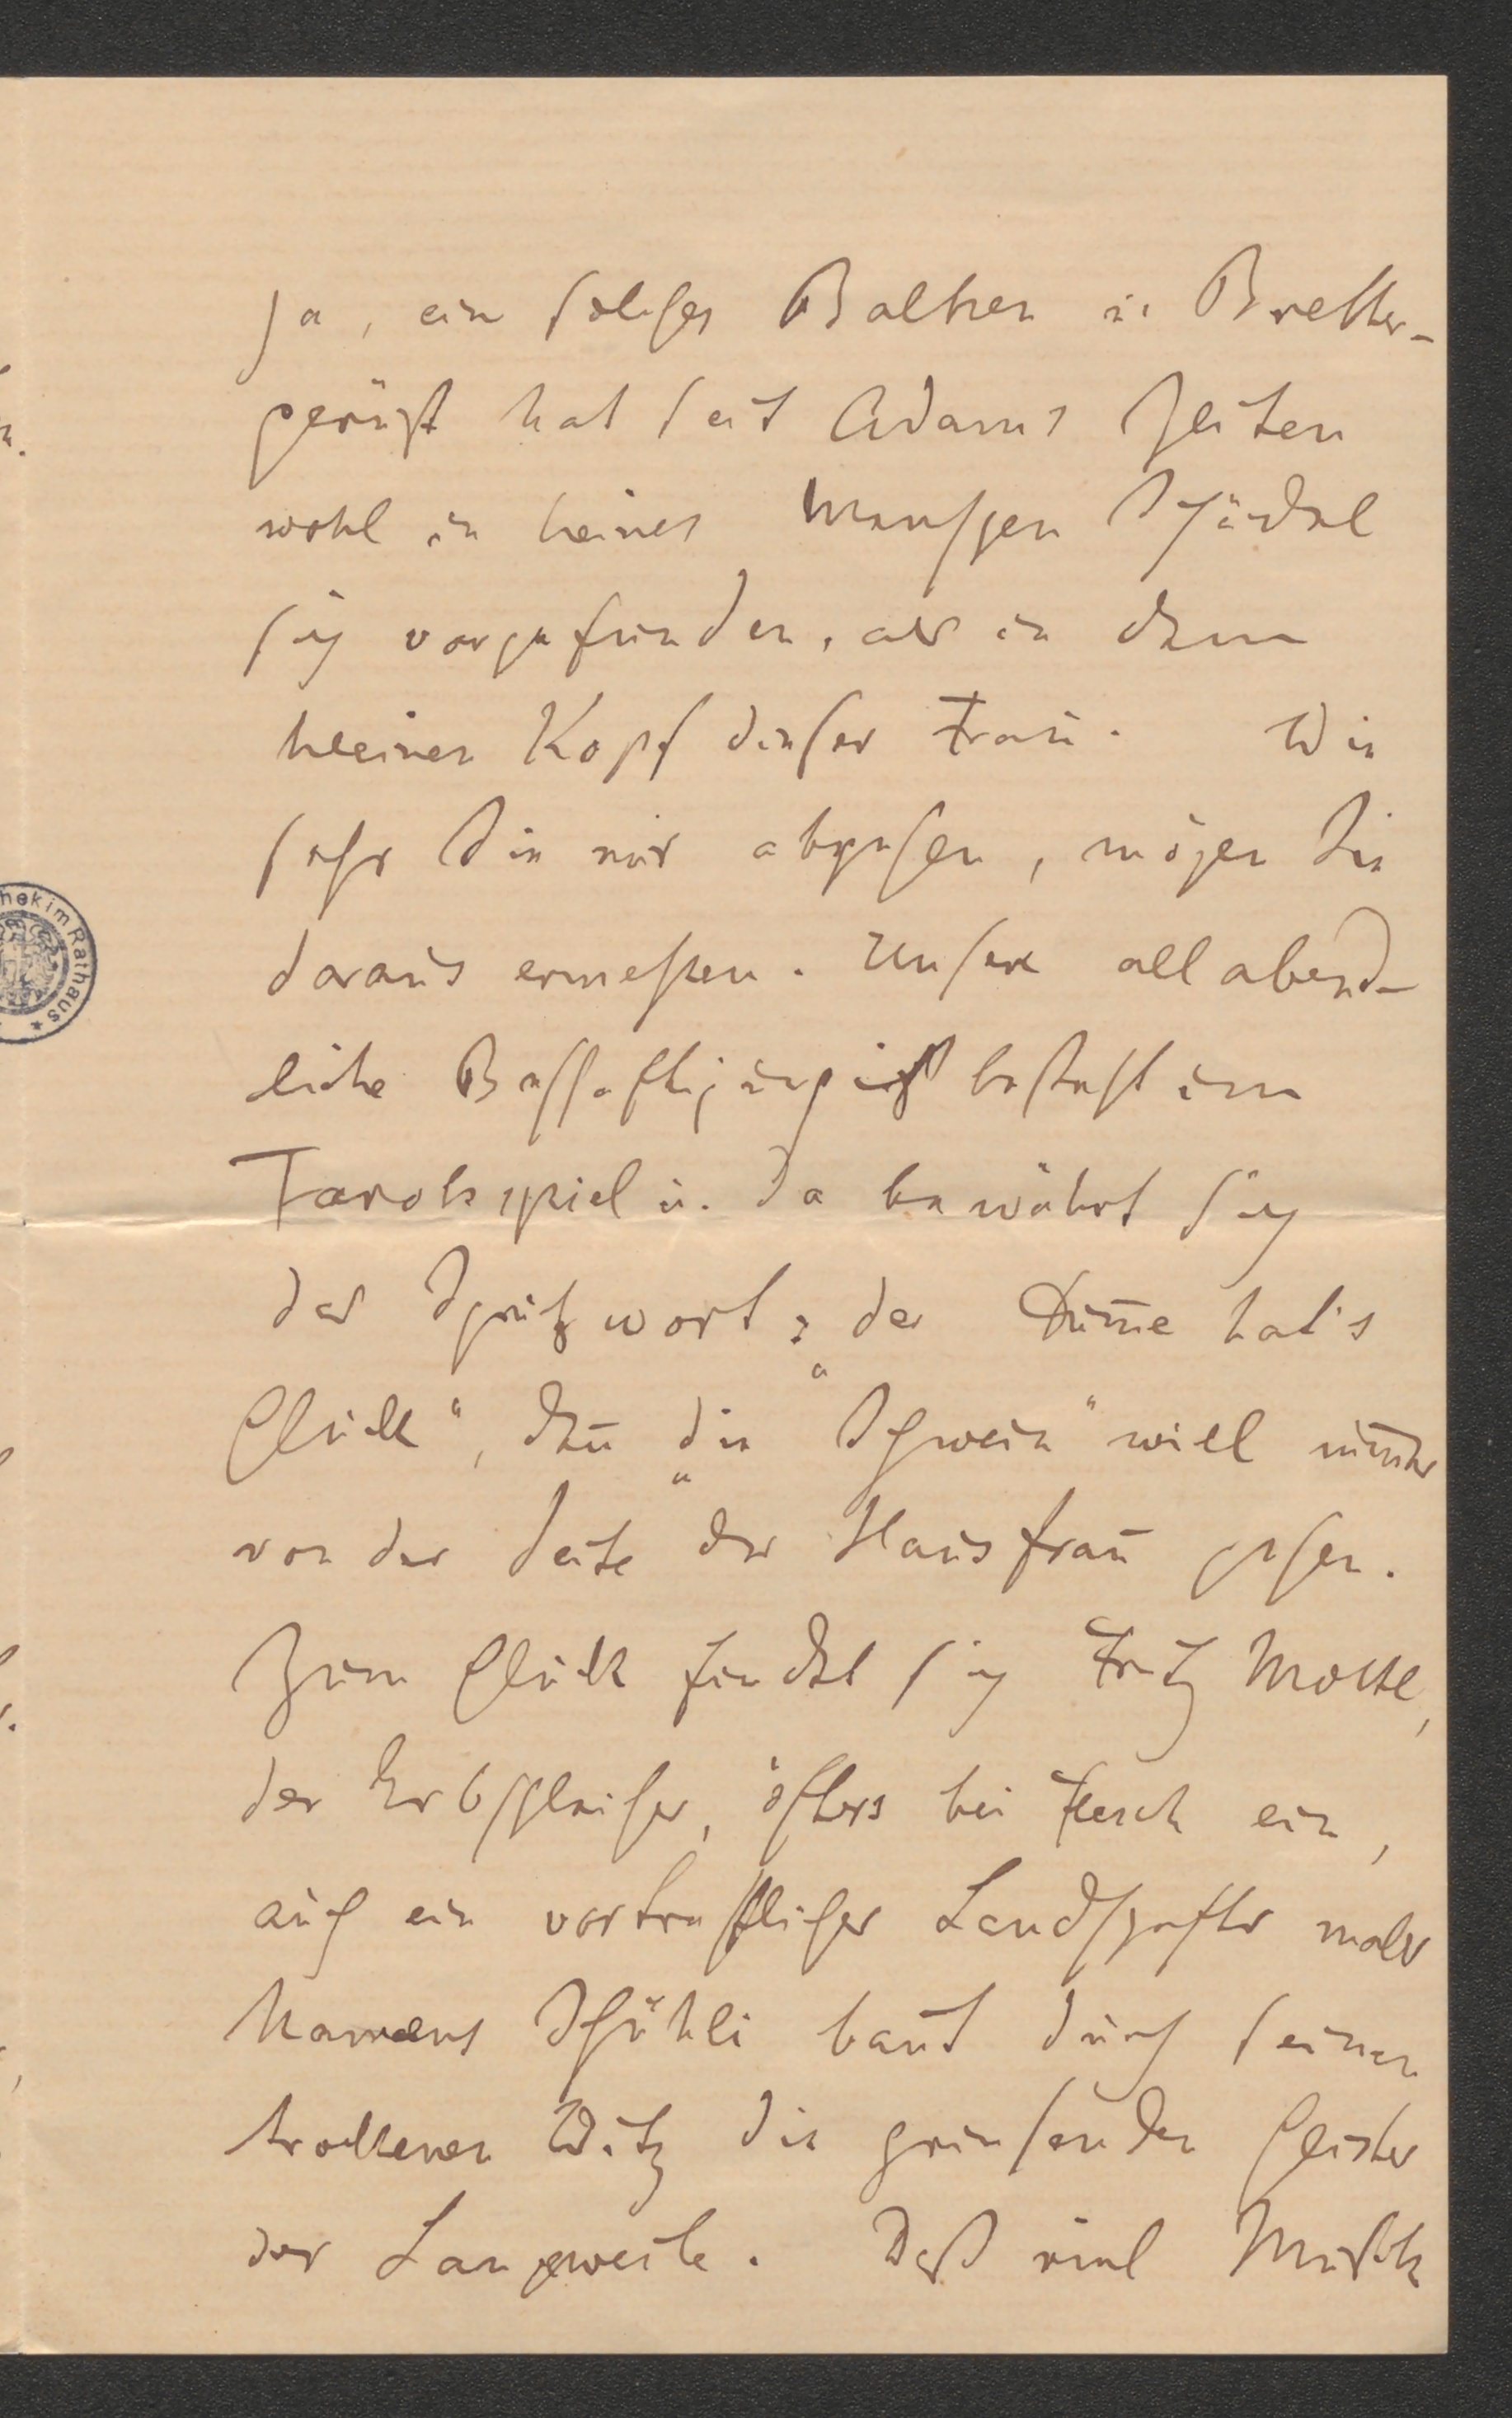 ja, ein solches Balken u. Bretter-
gerüst hat seit Adams Zeiten
wohl in keines Menschen Schädel
sich vorgefunden, als in dem
kleinen Kopf dieser Frau. Wie
sehr Sie mir abgehen, mögen Sie
daraus ermessen. Unsere allabend-
liche Beschäftigung besteht im
Tarokspiel u. da bewährt sich
das Sprichwort: „der Dum̅e hat's
Glück“, den̅ die „Schwein“ will im̅er
von der Seite der Hausfrau gehen.
Zum Glück findet sich Fritz Mottl,
der Erbschleicher, öfters bei Tisch ein,
auch ein vortrefflicher Landschafter maler
Namens Schükli bannt durch seinen
trockenen Witz die grinsenden Geister
der Langweile. Daß viel Musik
hek im Rathaus *